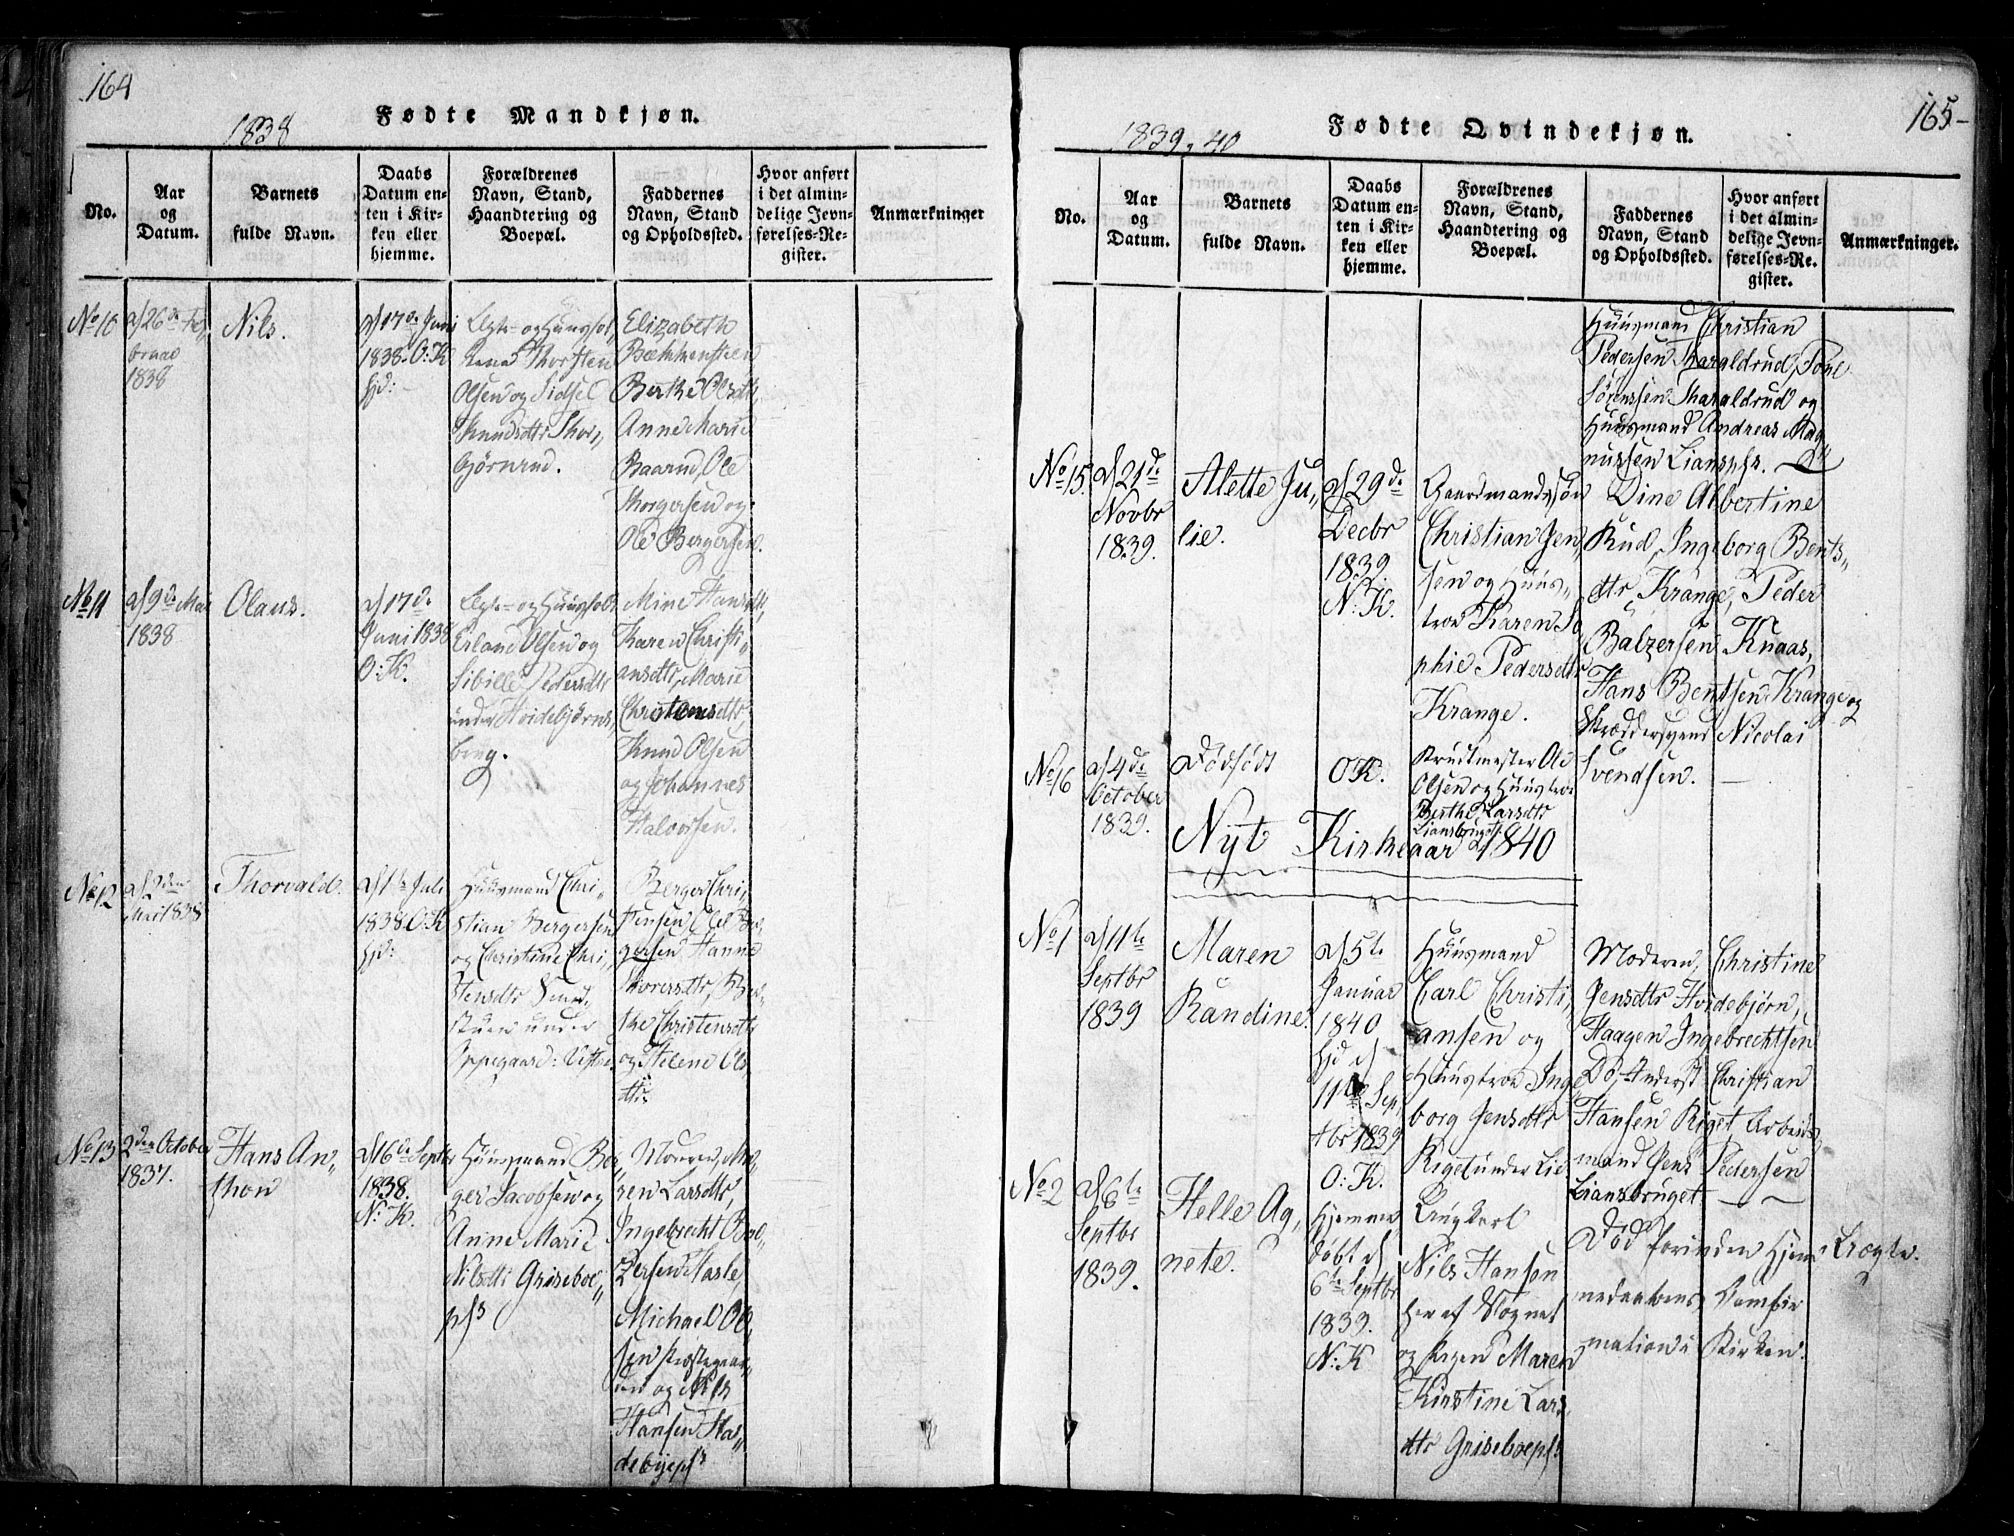 164
1838
Fødte Mandkjøn.
No.
Aar
og
Datum.
Barnets
fulde Navn.
Daabs
Datum en-
ten i Kir-
ken eller
hjemme.
Forældrenes
Navn, Stand,
Haandtering og
Boepæl.
Faddernes
Navn, Stand
og Opholdssted.
Hvor anført
i det almin-
delige Jevn-
førelses-Re-
gister.
Anmærkninger
No 10
d 26de Fe„
bruar
1838
Nils.
d 17de Juni
1838. O: K
hjd:
Thorsten
Olsen og Sidsel
Knudsdtr Thor„
bjørnrud.
Elizabeth
Berthe Olsdtr,
Anne Marie
Baarud, Ole
Thorgersen og
Ole Bergersen.
No 11
d 9de Mai
1838
Olaus.
d 17de
Juni 1838
O: K.
Erland Olsen og
Sibille Pedersdtr
under Hvidebjørns„
berg.
Mine Hansdtr,
Karen Christi„
ansdtr, Marie
Christensdtr,
Knud Olsen
og Johannes
Halvorsen.
No 12
Mai 1838
Thorvald.
d 1te Juli
1838. O: K
hjd:
Huusmand Chri„
stian Bergersen
og Christine Chri„
stensdtr
stuen under
Oppegaard: Vestre.
Berger Chri„
stensen, Ole Ber„
gersen Hanne
Thoresdtr, Ber„
the Christensdtr
og Helene Ols
dtr.
No 13
2den October
1837.
Hans An„
thon
d 16de Septbr
1838.
N: K.
Huusmand Ber„
ger Jacobsen og
Anne Marie
Nilsdtr Griseboe„
pls
Moderen,
Larsdtr,
Ingebrecht Bal„
zersen Hasle,
Michael Ol„
sen Præstegaar„
den og Nils
Hansen Has„
debyepls
165-
1839, 40
Fødte Qvindekjøn.
No.
Aar
og
Datum.
Barnets
fulde Navn.
Daabs
Datum en-
ten i Kir-
ken eller
hjemme.
Forældrenes
Navn, Stand,
Haandtering og
Boepæl.
Faddernes
Navn, Stand
og Opholdssted.
Hvor anført
i det almin-
delige Jevn-
førelses-Re-
gister.
Anmærkninger.
Huusmand Christian
Pedersen Tharaldrud,
Sørensen Tharaldrud og
Huusmand Andreas Mag„
nussen Lianspls.
No 15.
d 21de
Novbr
1839.
Alette Ju„
lie.
d 29de
Decbr
1839.
N: K.
Gaardmandssøn
Christian Jen„
sen og Huus„
troe Karen So„
phie Pedersdtr
Krange.
Dine Albertine
Rud, Ingeborg Bents„
dtr Krange, Peder
Balzersen Knaas,
Hans Bentsen Krange og
Skræddersvend Nicolai
Svendsen.
No 16
d 4de
October
1839.
Dødfødt
O K.
Krudtmester Ole
Olsen og Huustroe
Berthe Larsdtr
Liansbruget
Nyt Kirkeaar 1840
No 1
d 11te
Septbr
1839
Maren
Randine.
d 5te
Januar
1840
hjd d
11te Sep„
tbr 1839
O: K.
Huusmand
Carl Christi„
ansen og
Huustroe Inge„
borg Jensdtr
Riget under Lie.
Moderen, Christine
Jensdtr Hvidebjørn,
Haagen Ingebrechtsen
Do, Anders Christian
Hansen Riget Arbeids„
mand Jens Pedersen
Liansbruget
No 2
d 6te
Septbr
1839.
Helle Ag„
nete.
Hjemme
døbt d
6te Septbr
1839.
N: K
Ungkarl
Nils Hansen
her af Sognet
og Pigen Maren
Kirstine Lars
dtr Griseboepls
Død forinden Hjem„
medaabens Confir
mation i Kirken.
Uægte.